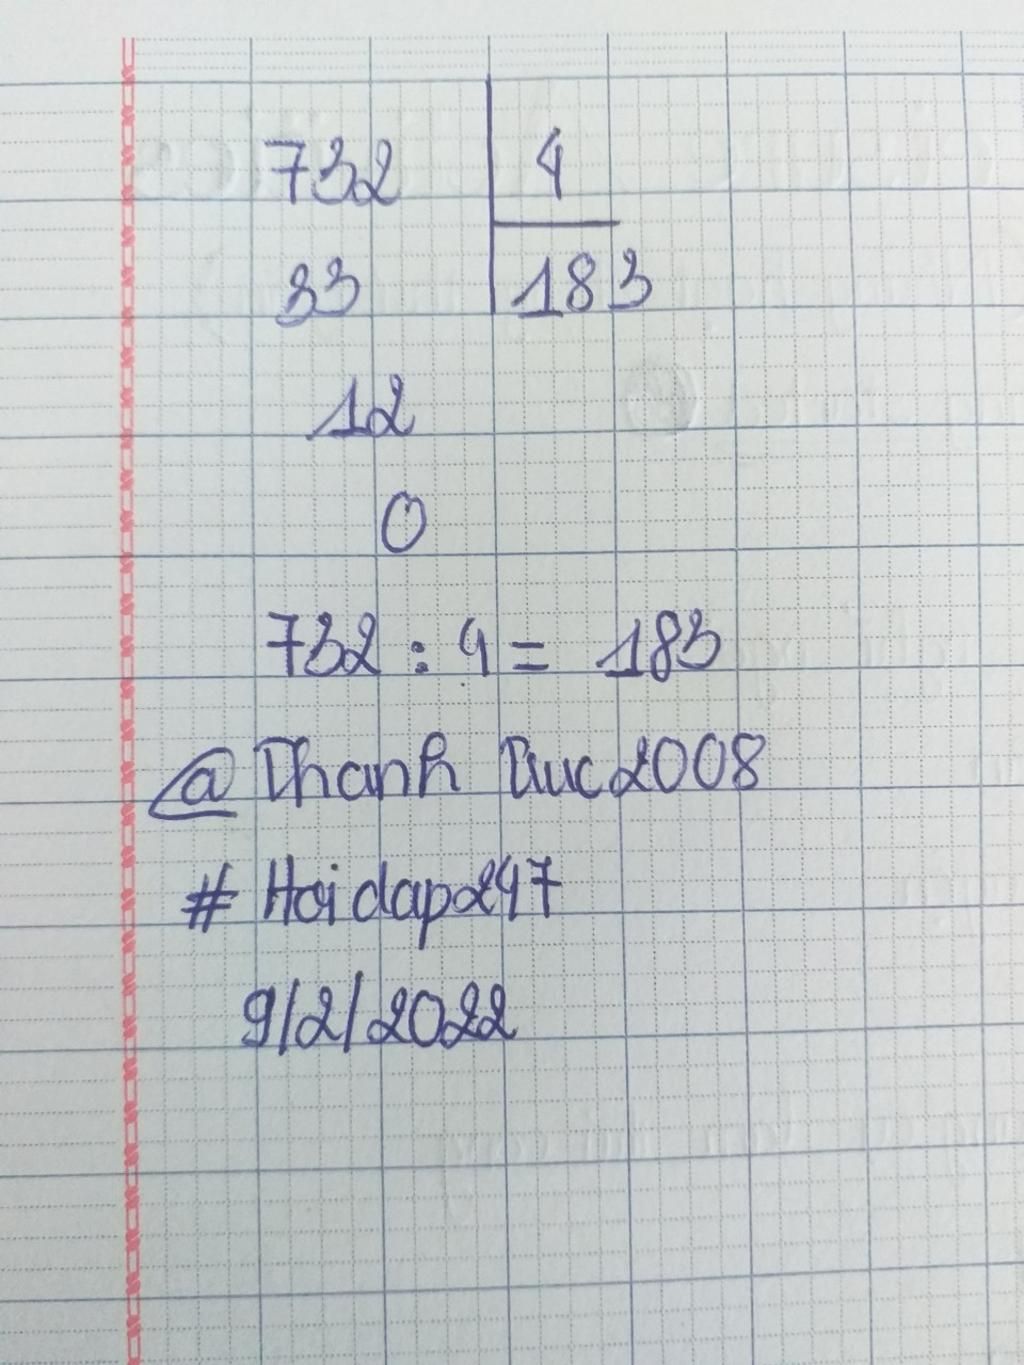 732 4
33 183
12
0
732 : 4 = 183
@Thanh Truc2008
# Hoidap247
9/2/2022